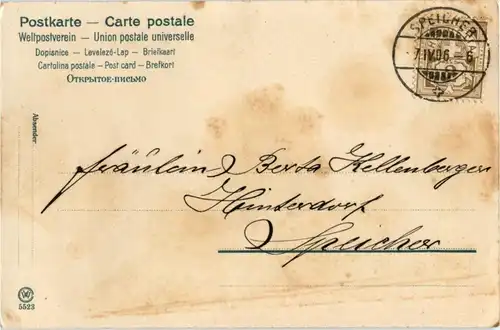 Postkarte — Carte postale
Weltpostverein — Union postale universelle
Dopisnice — Levelezö-Lap — Briefkaart
Cartolina postale — Post card — Brefkort
Открытое-письмо
SPEICHER
7.IV.06.-6
Absender
Fräulein Berta Kellenberger
Hinterdorf
Speicher
5523